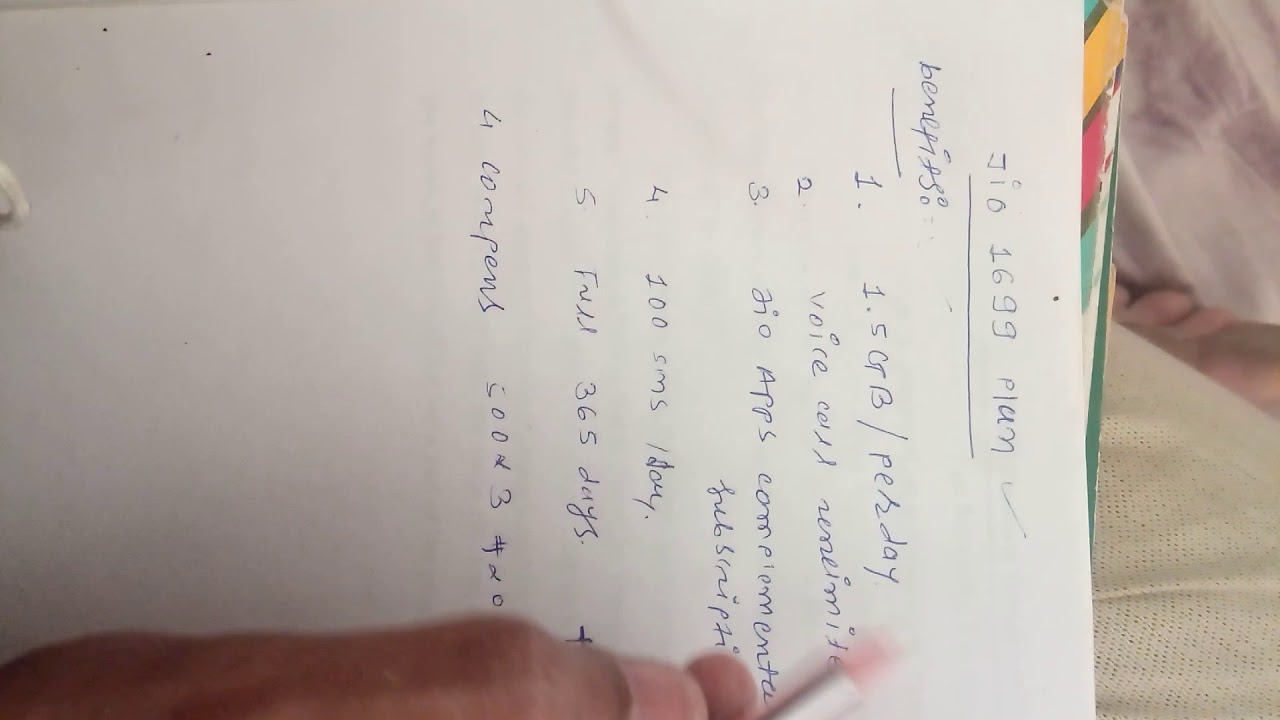 Jio 1699 plan ✓
benefits:-
1. 1.5GB/perday
2. voice call
3. Jio Apps complementa
subscripti
4. 100 sms /day.
5. Full 365 days. +
4 coupens 500 3